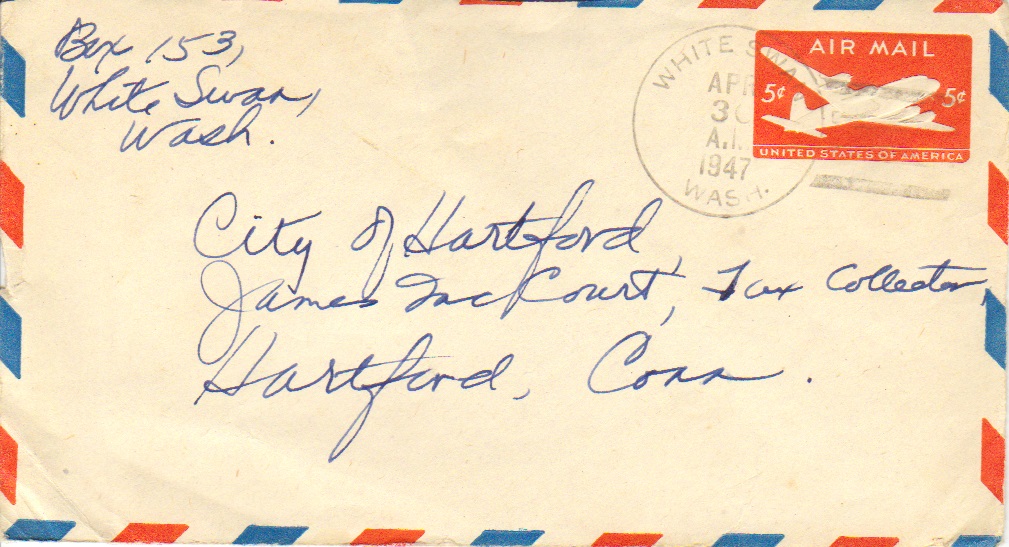 Box 153,
White Swan,
Wash.
WHITE SWA
APR
30
A.
1947
WASH.
AIR MAIL
5¢ 5¢
UNITED STATES OF AMERICA
City of Hartford,
James McCourt, Tax Collector,
Hartford, Conn.